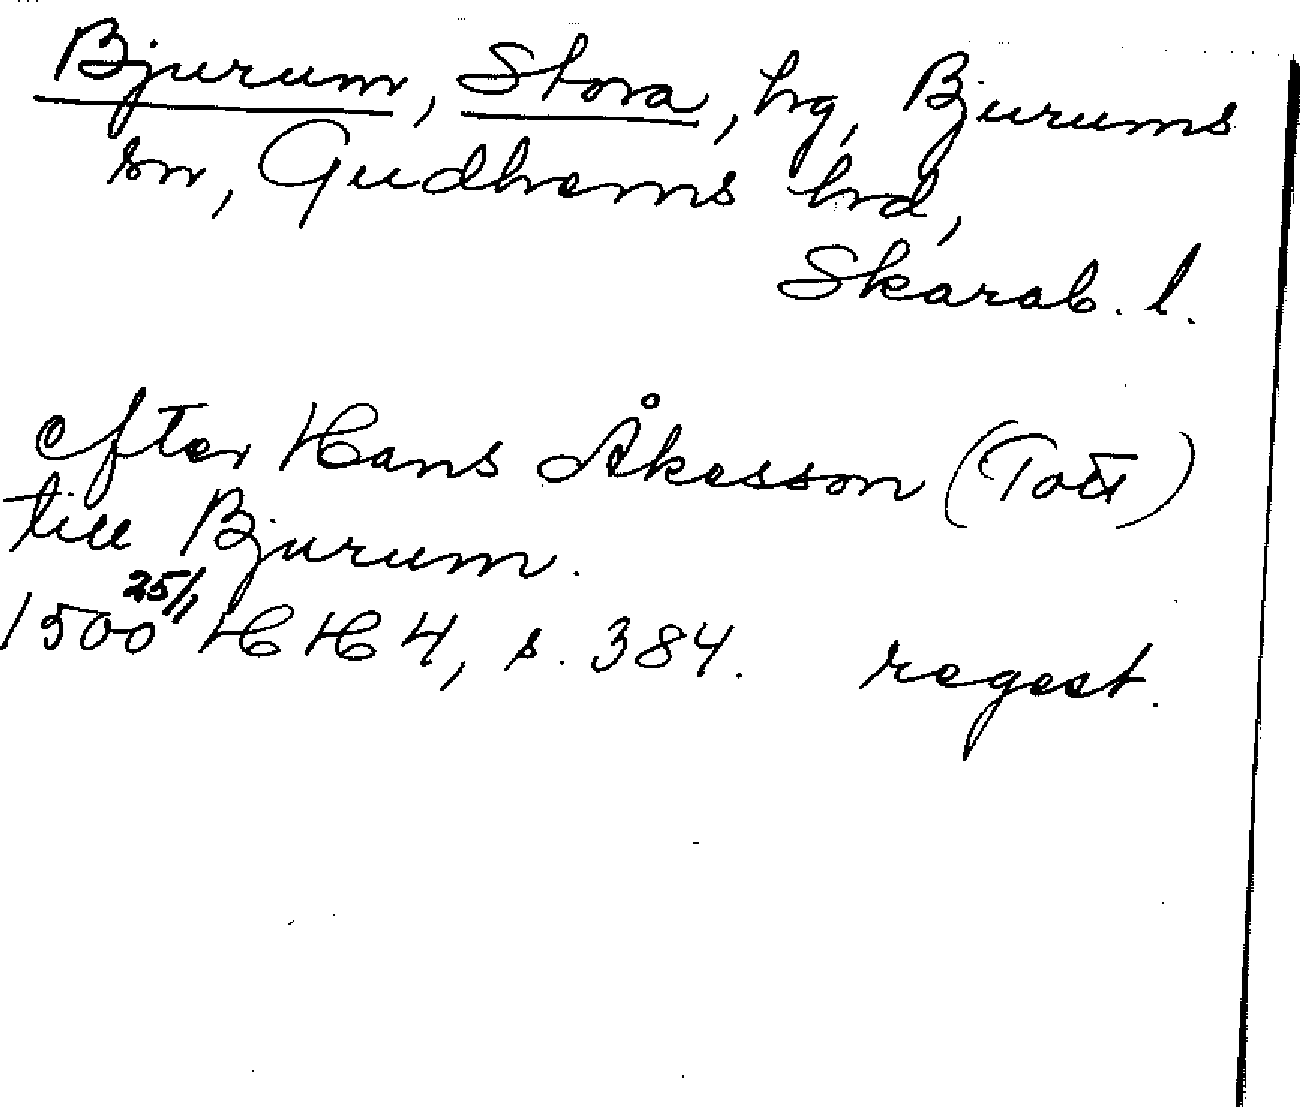 Bjurum, Stora, hg, Bjurums
sn, Gudhems hrd,
Skarab. l.
efter Hans Åkesson (Tott)
till Bjurum.
1500 25/1 HH 4, s. 384. regest.